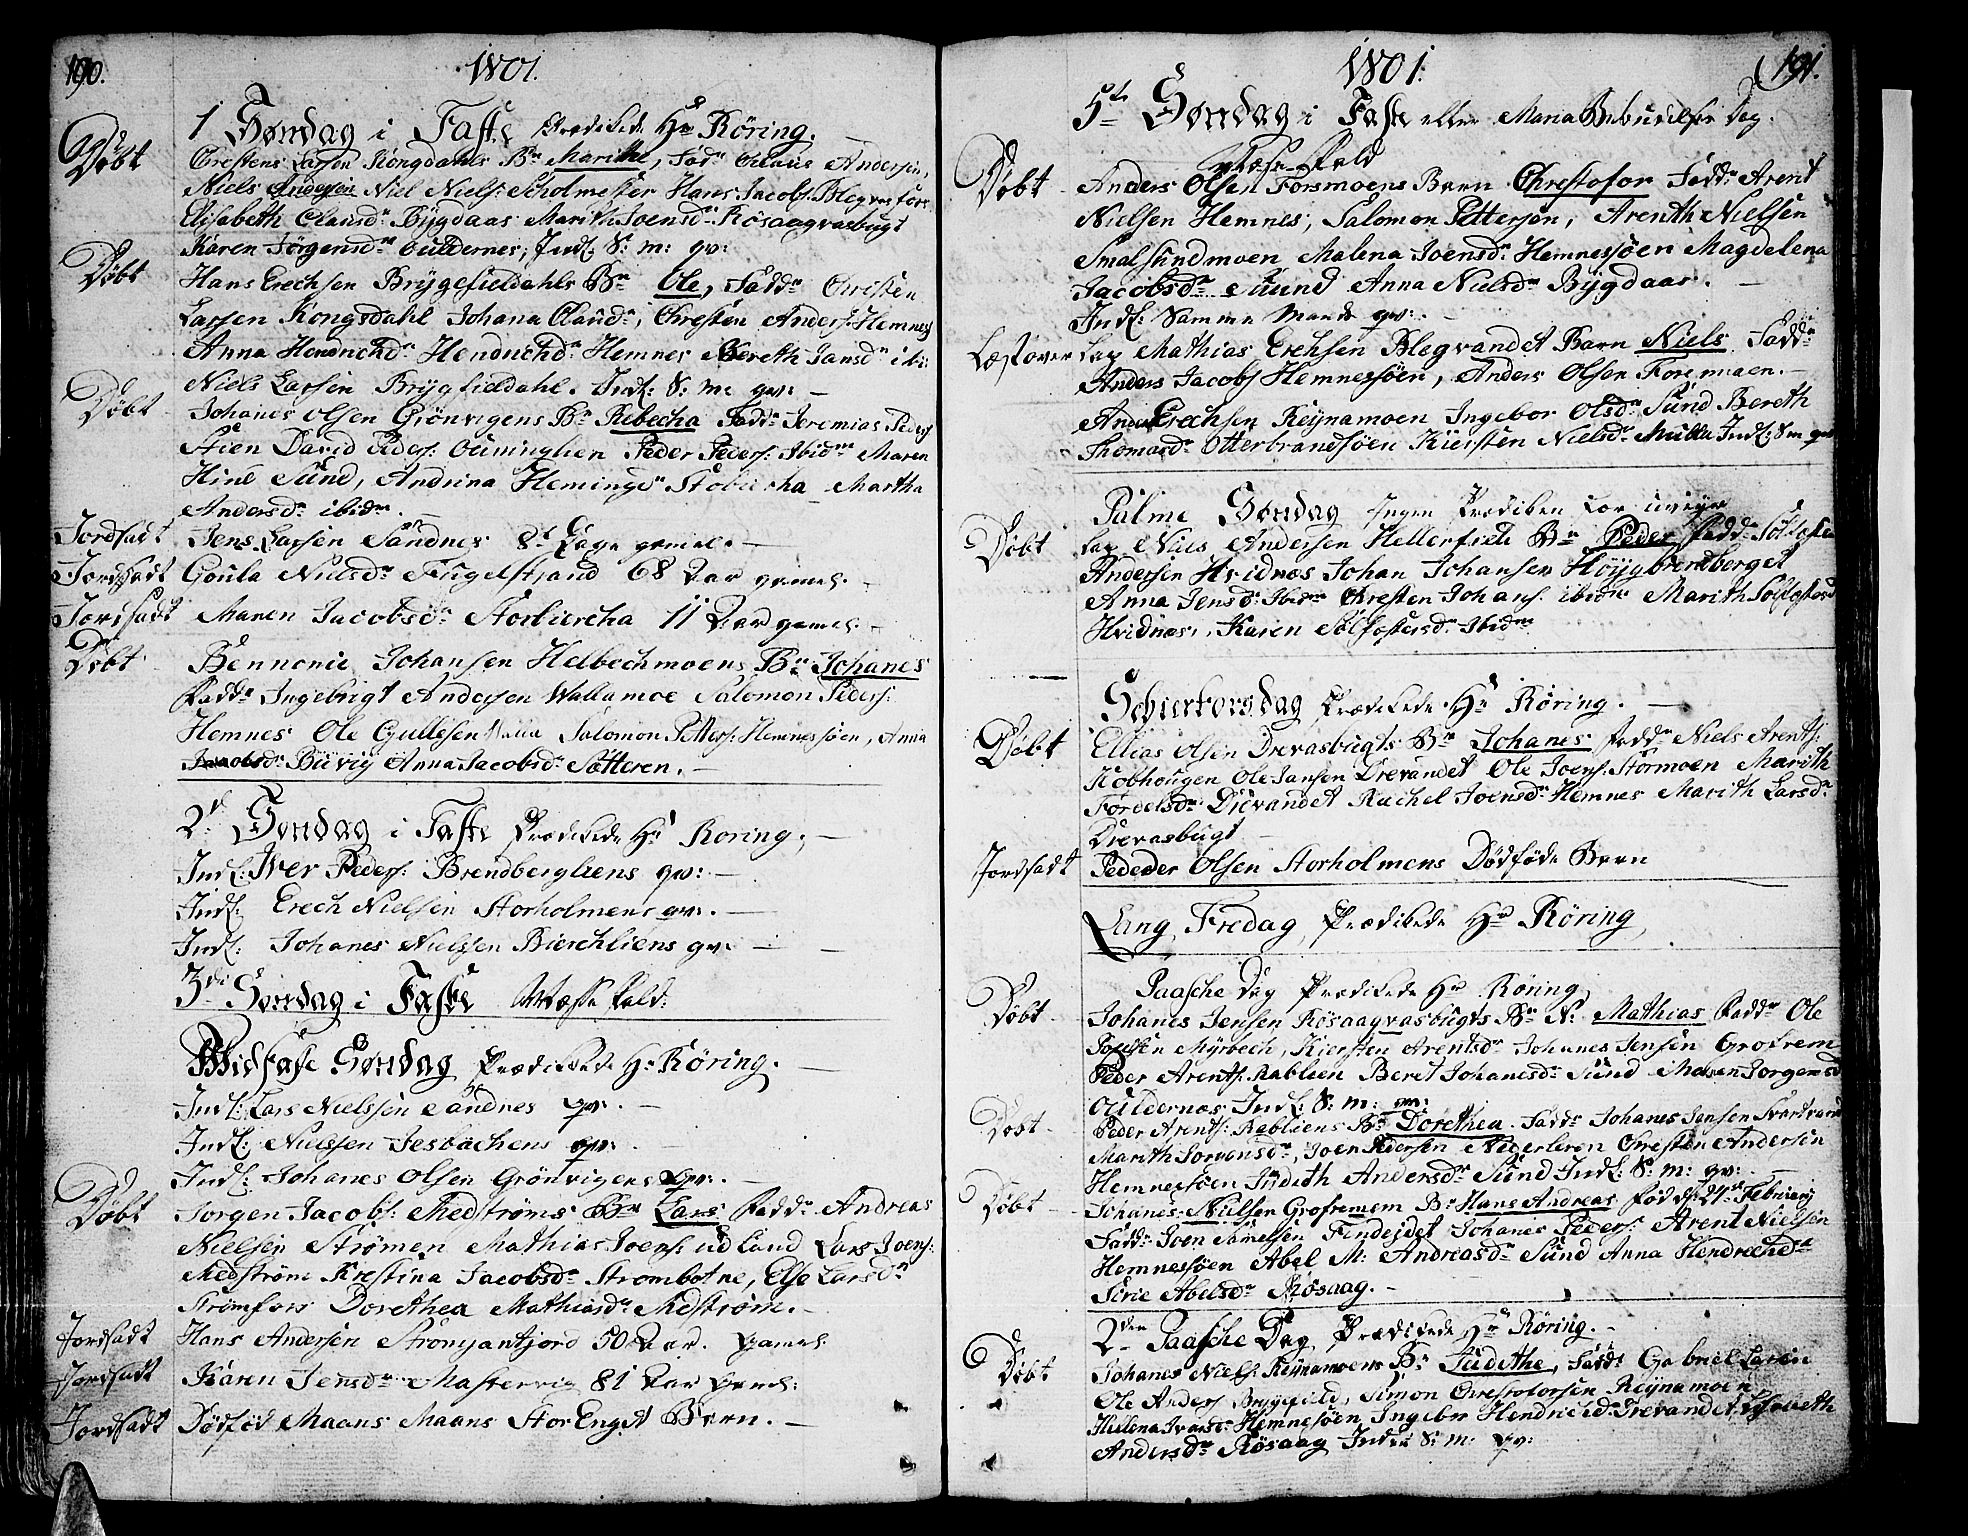 190.
1801.
1 Søndag i Faste Prædikede Hr Röring.
Døbt
Christens Larsen Kongdahls Bn Marithe, Fadr Andersen,
Niels Andersen Niel Niels: Scholmester Hans Jacobs: Blegvasfors
Elisabeth Olausdr Bÿgdaas Marith Joensdr Rösaagvasbugt
Karen Jörgensdr Ouldernes, Indl: S: m: qv:
Døbt
Hans Erechsen Brÿgefieldahls Bn Ole, Faddr Christen
Larsen Kongsdahl Johana Olausdr, Chresten Anders: Hemnes
Anna Hendrichdr Hendrichdr Hemnes Bereth Jansdr ibi:
Niels Larsen Brÿgfieldahl. Indl: S: m: qv: —
Døbt
Johanes Olsen Grönvigens Bn Rebecha Faddr Jeremias Peders
Stien David Peders: Peder Peders: Ibidm Maren
Hine Sund, Andrina Hemingsdr Stobiercha Martha
Andersdr ibidm. —
Jordfadt Jens Larsen Sandnes 8t Dage gamel. —
Jordfadt Goula Nielsdr Fugelstrand 68 Aar gamel. —
Jordfadt Maren Jacobsdr Storbiercha 11 Aar gamel. —
Døbt
Bennonie Johansen Helbechmoens Bn Johanes
Faddr Ingebrigt Andersen Wallamoe Salomon Peders:
Hemnes Ole Gullesen Salomon Petters: Hemnessöen, Anna
Jacobsdr Büvig Anna Jacobsdr Sætteren. —
2d Søndag i Faste Prædikede Hr Roring. —
Indl: Iver Peders: Brendbergliens qv: —
Indl: Erech Nielsen Storholmens qv. —
Indl: Johanes Nielssen Bierchliens qv: — —
3die Søndag i Faste Mæsse Fald.
Midfaste Søndag Prædikede Hr Röring. —
Indl: Lars Nielssen Sandnes qv. —
Indl: Nielssen Jesbachens qv:
Indl: Johanes Olsen Grönvigens qv: —
Døbt
Jorgen Jacobs: Medströms Bn Lars Faddr Andreas
Nielsen Strömen Mathias Joens: ud Land Lars Joens:
Medström Krestina Jacobsdr Strombotne, Else Larsdr
Strömfors Dorethea Mathiasdr Medström. —
Jordfadt Hans Andersen 50 Aar. gamel
Jordfadt Karen Jensdr Mastervig 81 Aar gamel:
Jordfadt Dödföd Maans Maans StorEnget Barn. —
1801.
191.
5te Søndag i Faste eller Maria Bebudelses Dag.
Mæsse Fald
Døbt
Anders Olsen Forsmoens Barn Chrestofor Faddr Arent
Nielsen Hemnes, Salomon Pettersen, Arenth Nielsen
Smalsundmoen Malena Joensdr Hemnessöen Magdelena
Jacobsdr Sund Anna Nielsdr Bÿgdaas. —
Indl: Samme Mands qv. —
Læst over
Lap Mathias Erechsen Blegvandet Barn Niels Faddr
Anders Jacobs Hemnessöen, Anders Olsen Forsmoen. —
Anders Erechsen Reÿnamoen Ingebor Olsdr Sund Bereth
Thomasdr Otterbrandsöen Kiersten Nielsdr Mulla Indl: S m qv
Palme Søndag Ingen Prædiken for uveyr
Døbt
Lap Niels Andersen Hellerfield Bn Peder Faddr Solfoster
Andersen Hvidnæs Johan Johansen Höÿgbrendberget
Anna Jensdr Ibidm Chresten Johans: ibidm Marith Solfostersd
Hvidnæs, Karen Solfostersdr Ibidm
Schiertorsdag Prædikede Hr Röring. —
Døbt
Ellias Olsen Drevasbugts Bn Johanes Faddr Niels Arents:
Kobhougen Ole Jansen Drevandet Ole Joens: Stormoen Marith
Fordelsdr Drevandet Rachel Joensdr Hemnes Marith Larsdr
Drevasbugt
Jordfadt Pededer Olsen Storholmens Dödföde Barn
Lang Fredag Prædikede Hr Röring
Paasche Dag Prædikede Hr Röring
Døbt
Johanes Jensen Rösaagvasbugts Bn N: Mathias Faddr Ole
Joesten Mÿrbech, Kiersten Arentsdr Johanes Jensen Grofrem
Peder Arents: Rablien Beret Johanesdr Sund Maren Jorgensd
Ouldernæs Indl: S: m: qv:
Døbt
Peder Arents: Rabliens Bn Dorethea Faddr Johanes Jensen Svartvand
Marith Jorgensdr, Joen Pedersen Nederleren Chresten Andersen
Hemnessöen Judith Andersdr Sund Indl: S: m: qv: —
Døbt
Johanes Nielsen Grofremem Bn Hans Andreas Föd d: 24d Februarij
Faddr Joen Samelsen Findejdet Johanes Peders: Arent Nielsen
Hemnessöen Abel M: Andreasdr Sund Anna Hendrechdr
Sirie Abelsdr Rösaag. —
2den Paasche Dag Prædikede Hr Röring. —
Døbt
Johanes Niels Reÿnamoens Bn Judithe, Faddr Gabriel Larsen
Ole Anders Brÿgefield, Simon Chrestofersen Reÿnamoen
Hellena Ivarsdr Hemnesöen Ingebor Hendrichdr Drevandet Elsebeth
Andersdr Rösaag Indl: S: m: qv: